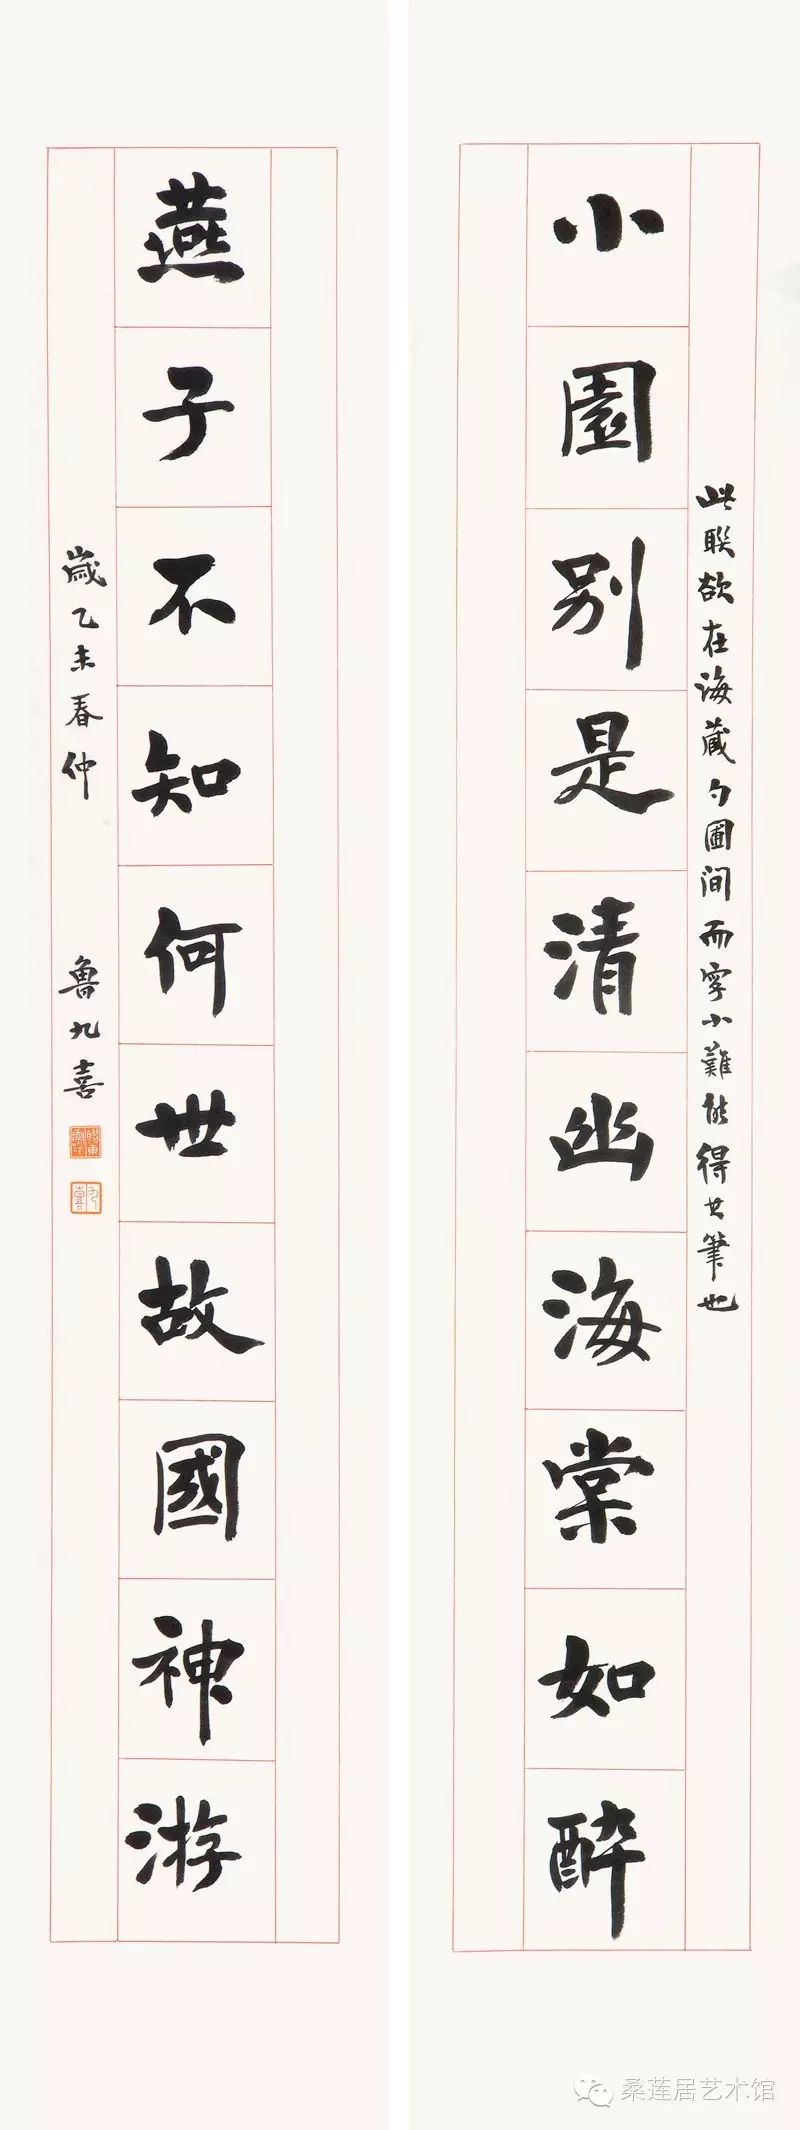 小園別是清幽海棠如醉
此聯欲在海藏勺圃间而字小難能得其筆也
燕子不知何世故國神游
歲乙未春仲
魯九喜
九喜
桑莲居艺术馆